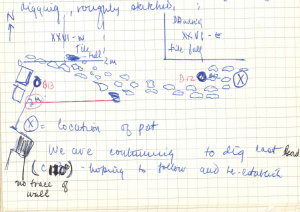 digging, roughly sketched,
N
XXVI-W
Till
fall
2m
Drawing
XXVI-E
till fall
B13
Br2
X
2m
X = location of pot
We are continuing to dig east
- hoping to follow and re-establish
no trace of
wall